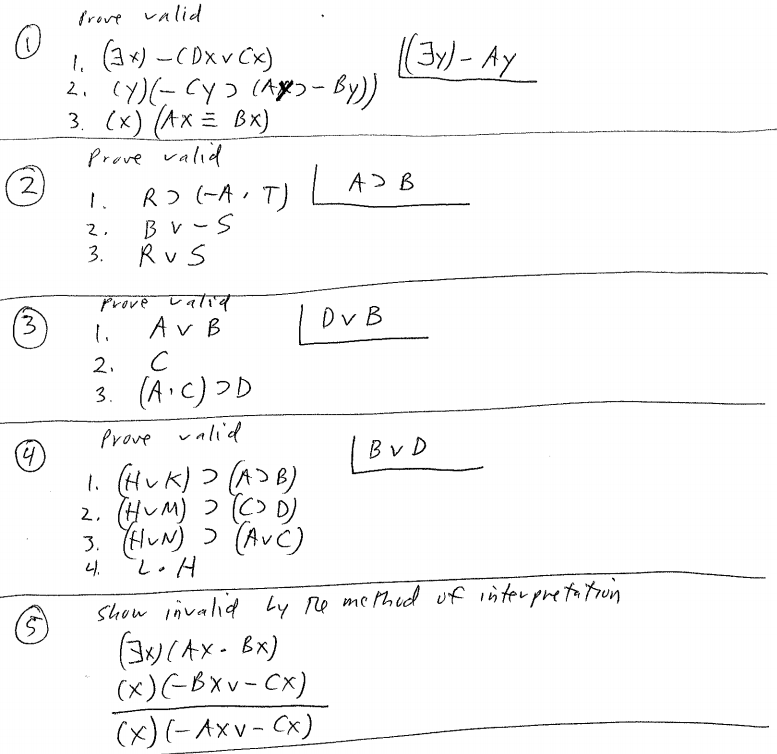 ① Prove valid
1. (∃x) -(Dx ∨ Cx) |(∃y) - Ay
2. (y)(-Cy ⊃ (Ay ⊃ -By))
3. (x) (Ax ≡ Bx)
② Prove valid
1. R ⊃ (-A · T) | A ⊃ B
2. B ∨ -S
3. R ∨ S
③ Prove valid
1. A ∨ B | D ∨ B
2. C
3. (A · C) ⊃ D
④ Prove valid
| B ∨ D
1. (H ∨ K) ⊃ (A ⊃ B)
2. (H ∨ M) ⊃ (C ⊃ D)
3. (H ∨ N) ⊃ (A ∨ C)
4. L · H
⑤ Show invalid by the method of interpretation
(∃x)(Ax · Bx)
(x)(-Bx ∨ -Cx)
(x)(-Ax ∨ -Cx)